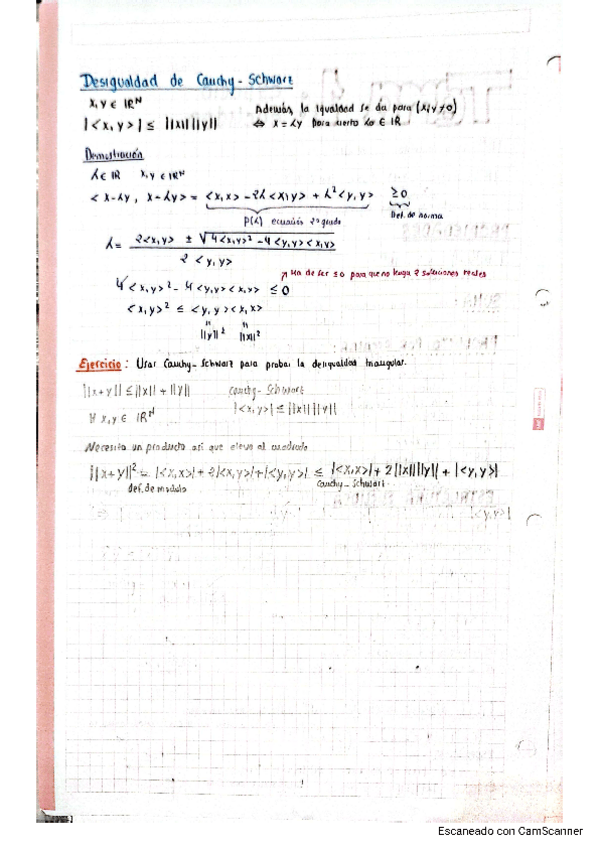 Desigualdad de Cauchy-Schwarz
x, y ∈ IRᴺ
Además, la igualdad se da para (x, y ≠ 0)
|<x, y>| ≤ ||x|| ||y||
⇔ x = λy para cierto λ₀ ∈ IR
Demostración
λ ∈ IR x, y ∈ IRᴺ
< x-λy, x-λy > = <x,x> - 2λ <x,y> + λ² <y,y> ≥ 0
P(λ) ecuación 2º grado
Def. de norma
λ = 2<x,y> ± √4<x,y>² - 4<y,y><x,x>
2 <y,y>
Ha de ser ≤ 0 para que no haya 2 soluciones reales
4<x,y>² - 4<y,y><x,x> ≤ 0
<x,y>² ≤ <y,y><x,x>
" "
||y||² ||x||²
Ejercicio: Usar Cauchy-Schwarz para probar la desigualdad triangular.
||x+y|| ≤ ||x|| + ||y|| Cauchy-Schwarz
∀ x,y ∈ IRᴺ |<x,y>| ≤ ||x|| ||y||
Necesito un producto así que elevo al cuadrado
||x+y||² = |<x,x>| + 2|<x,y>| + |<y,y>| ≤ |<x,x>| + 2||x|| ||y|| + |<y,y>|
def. de modulo
Cauchy-Schwarz
Escaneado con CamScanner